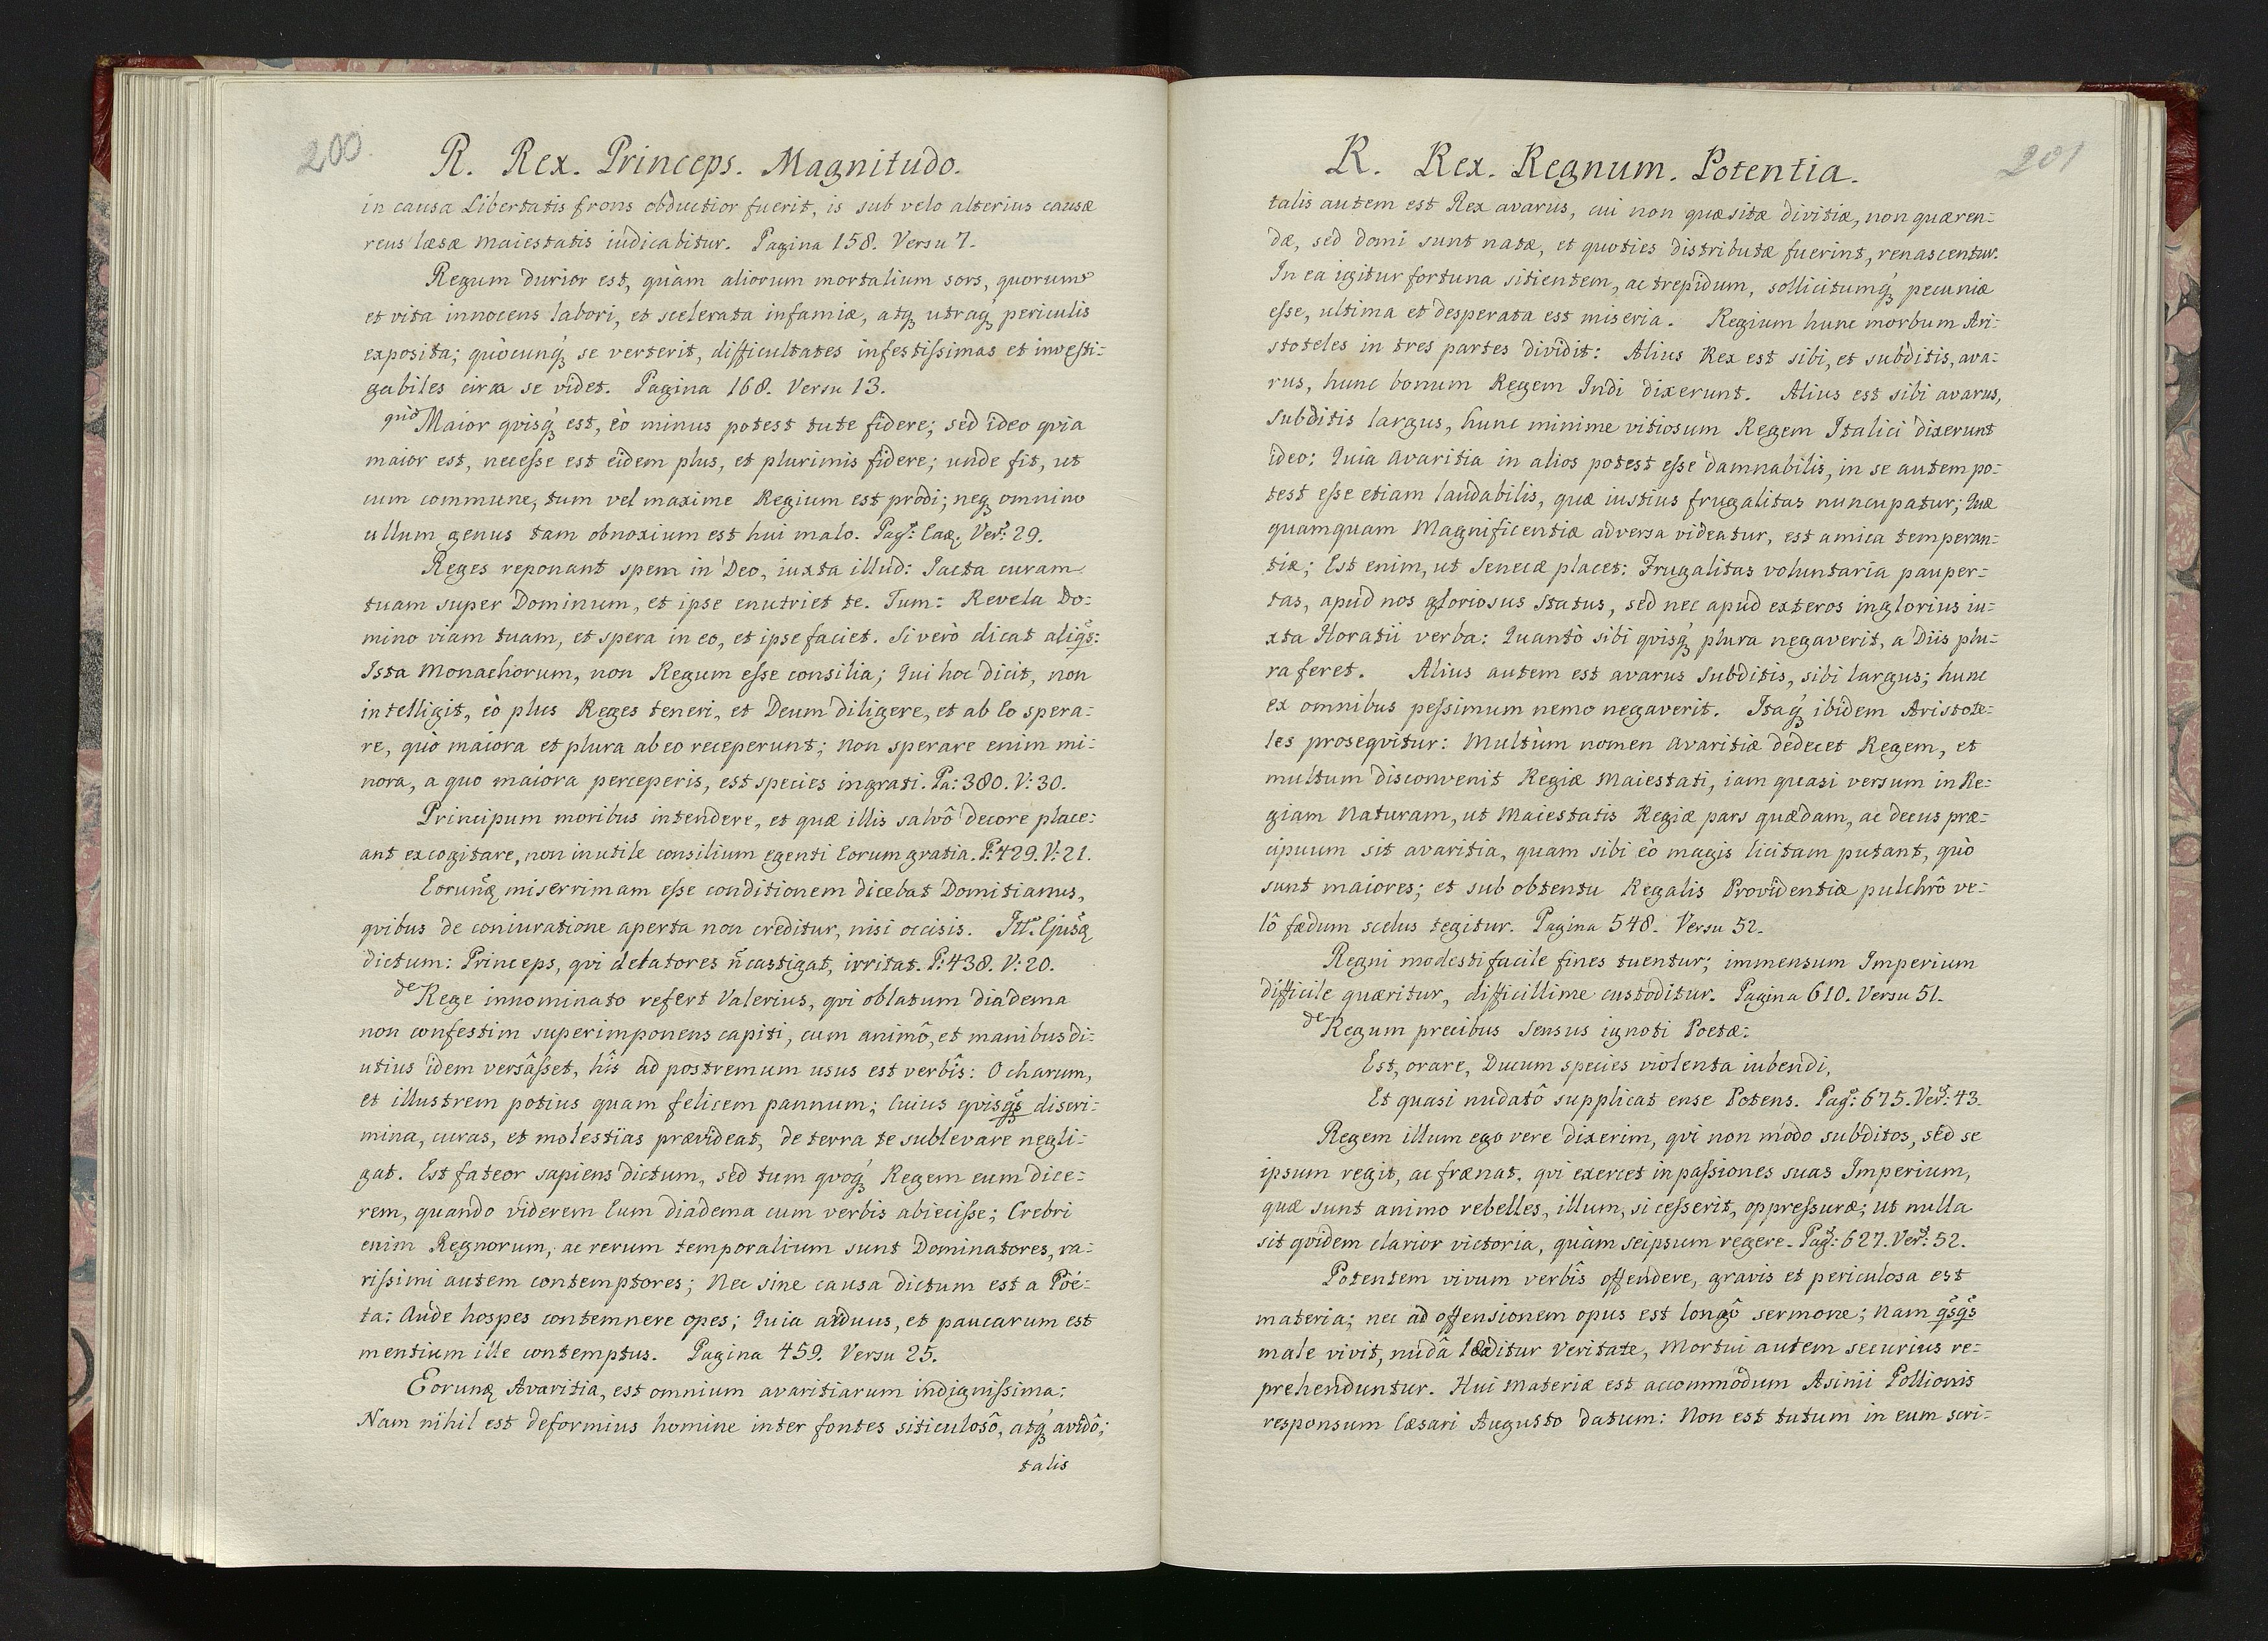 200.
R. Rex. Princeps. Magnitudo.
in causa Libertatis frons obductior fuerit, is sub velo alterius causæ
reus læsæ Maiestatis iudicabitur. Pagina 158. Versu 7.
Regum durior est, quàm aliorum mortalium sors, quorum
et vita innocens labori, et scelerata infamiæ, atq́ꝫ utraq́ꝫ periculis
exposita; quòcunq́ꝫ se verterit, difficultates infestiſsimas et investi:
gabiles circa se videt. Pagina 168. Versu 13.
quò Maior qvisq́ꝫ est, èò minus potest tute fidere; sed ideo qvia
maior est, neceſse est eidem plus, et plurimis fidere; unde fit, ut
cum commune, tum vel maxime Regium est prodi; neqꝫ omnino
ullum genus tam obnoxium est hui malo. Pag: Eaꝫ. Ver: 29.
Reges reponant spem in Deo, iuxta illud: Iacta curam
tuam super Dominum, et ipse enutriet te. Tum: Revela Do:
mino viam tuam, et spera in eo, et ipse faciet. Si verò dicat aliqs:
Ista Monachorum, non Regum eſse consilia; Qui hoc dicit, non
intelligit, èò plus Reges teneri, et Deum diligere, et ab Eo spera:
re, quò maiora et plura ab eo receperunt; Non sperare enim mi:
nora, a quo maiora perceperis, est species ingrati. Pa: 380. V: 30.
Principum moribus intendere, et quæ illis salvô decore place:
ant excogitare, non inutile consilium egenti Eorum gratia. P: 429. V: 21.
Eorunꝫ miserrimam eſse conditionem dicebat Domitianus,
qvibus de coniuratione aperta non creditur, nisi occisis. Itē Ejusꝫ
dictum: Princeps, qvi delatores n̄ castigat, irritat. P: 438. V: 20.
de Rege innominato refert Valerius, qvi oblatum diadema
non confestim superimponens capiti, cum animô, et manibus di:
utius idem versâſset, hîs ad postremum usus est verbîs: O charum,
et illustrem potius quam felicem pannum; Cuius qvisqs discri:
mina, curas, et molestias prævideat, de terra te sublevare negli:
gat. Est fateor sapiens dictum, sed tum qvoq́ꝫ Regem eum dice:
rem, quando viderem Eum diadema cum verbis abieciſse; Crebri
enim Regnorum, ac rerum temporalium sunt Dominatores, ra:
riſsimi autem contemptores; Nec sine causa dictum est a Poë:
ta: Aude hospes contemnere opes; Quia arduus, et paucarum est
mentium ille contemptus. Pagina 459. Versu 25.
Eorunꝫ Avaritia, est omnium avaritiarum indigniſsima:
Nam nihil est deformius homine inter fontes siticulosô, atq́ꝫ avidô;
talis
201
R. Rex. Regnum. Potentia.
talis autem est Rex avarus, cui non quæsitæ divitiæ, non quæren:
dæ, sed domi sunt natæ, et quoties distributæ fuerint, renascentur.
In ea igitur fortuna sitientem, ac trepidum, sollicitumq́ꝫ pecuniæ
eſse, ultima et desperata est miseria. Regium hunc morbum Ari:
stoteles in tres partes dividit: Alius Rex est sibi, et subditis, ava:
rus, hunc bonum Regem Indi dixerunt. Alius est sibi avarus,
subditis largus, hunc minime vitiosum Regem Italici dixerunt
ideo: Quia avaritia in alios potest eſse damnabilis, in se autem po:
test eſse etiam laudabilis, quæ iustius frugalitas nuncupatur; Quæ
quamquam Magnificentiæ adversa videatur, est amica temperan:
tiæ; Est enim, ut Senecæ placet: Frugalitas voluntaria pauper:
tas, apud nos gloriosus status, sed nec apud exteros inglorius iu:
xta Horatii verba: Quantò sibi qvisq́ꝫ plura negaverit, a Diis plu:
ra feret. Alius autem est avarus subditis, sibi largus; hunc
ex omnibus peſsimum nemo negaverit. Itaq́ꝫ ibidem Aristote:
les proseqvitur: Multùm nomen avaritiæ dedecet Regem, et
multum disconvenit Regiæ Maiestati, iam quasi versum in Re:
giam Naturam, ut Maiestatis Regiæ pars quædam, ac decus præ:
cipuum sit avaritia, quam sibi èò magis licitam putant, quò
sunt maiores; et sub obtentu Regalis Providentiæ pulchrô ve:
lô fædum scelus tegitur. Pagina 548. Versu 52.
Regni modesti facile fines tuentur; immensum Imperium
difficile quæritur, difficillime custoditur. Pagina 610. Versu 51.
de Regum precibus sensus ignoti Poetæ:
Est, orare, Ducum species violenta iubendi,
Et quasi nudatô supplicat ense Potens. Pag: 675. Ver: 43.
Regem illum ego vere dixerim, qvi non modo subditos, sed se
ipsum regit, ac frænat, qvi exercet in paſsiones suas Imperium,
quæ sunt animo rebelles, illum, si ceſserit, oppreſsuræ; ut nulla
sit qvidem clarior victoria, quàm seipsum regere. Pag: 627. Ver: 52.
Potentem vivum verbîs offendere, gravis et periculosa est
materia; nec ad offensionem opus est longô sermone; Nam qsqs
male vivit, nudâ læditur veritate, Mortui autem securius re:
prehenduntur. Hui materiæ est accommodum Asinii Pollionis
responsum Cæsari Augusto datum: Non est tutum in eum scri: